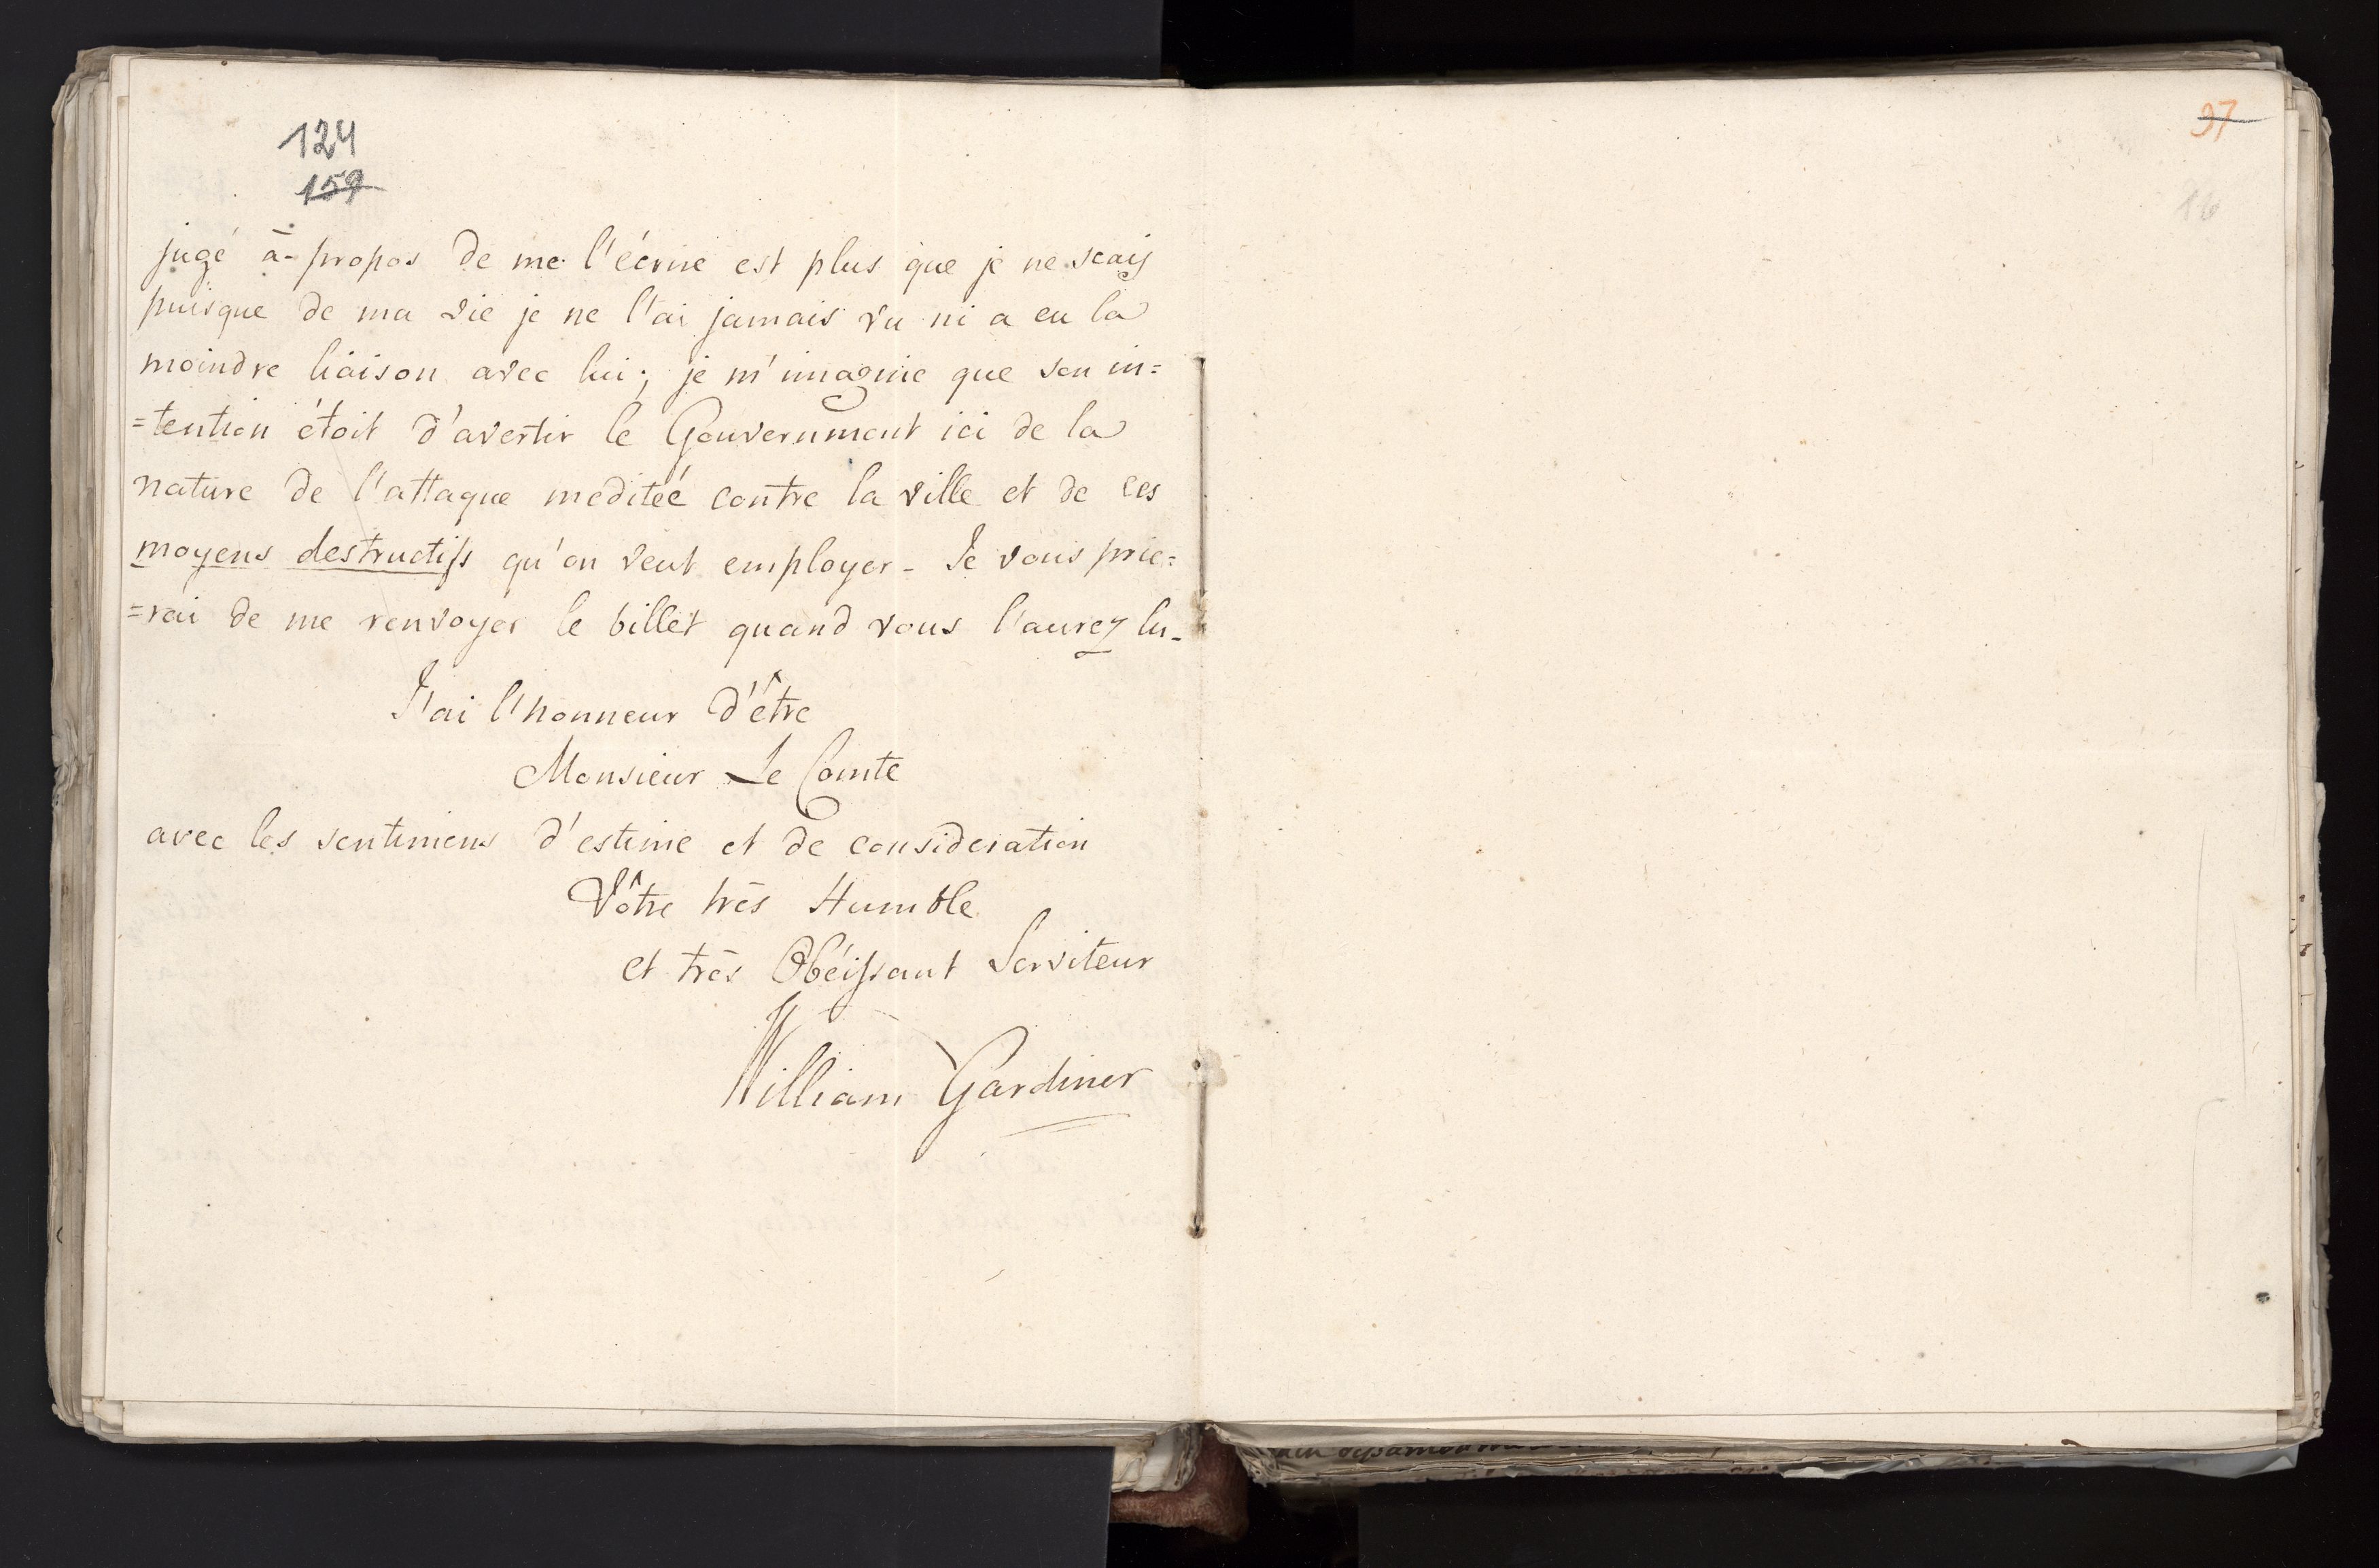 124
159
jugé à-propos de me l'écrire est plus que je ne scais
puisque de ma vie je ne l'ai jamais vu ni a eu la
moindre liaison avec lui; je m'imagine que son in=
=tention étoit d'avertir le Gouvernment ici de la
nature de l'attaque meditéé contre la ville et de ces
moyens destructifs qu'on veut employer - Je vous prie=
=rai de me renvoyer le billet quand vous l'aurez lu -
J'ai l'honneur d'être
Monsieur Le Comte
avec les sentimens d'estime et de consideration
Vôtre très Humble
et très Obéissant Serviteur
William Gardiner
37
16